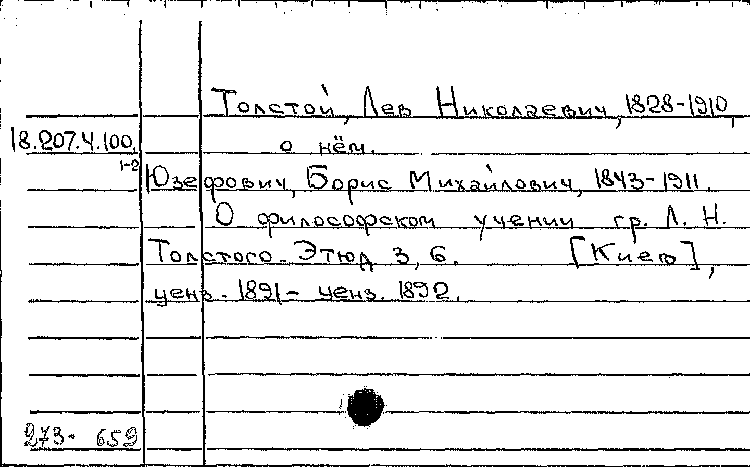 Толстой, Лев Николаевич, 1828-1910,
18.207.4.100. о нём.
1-2
Юзефович, Борис Михайлович, 1843-1911.
О философском учении гр. Л. Н.
Толстого. Этюд 3, 6. [Киев],
ценз. 1891- ценз. 1892.
273- 659